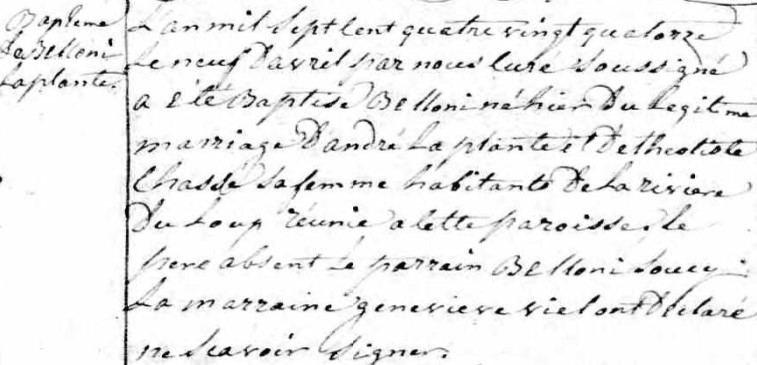 Bapteme
De Belloni
Laplante.
L'an mil sept cent quatre vingt quatorze
Le neuf D'avril par nous Curé soussigné
a été Baptisé Belloni né hier Du Legitme
marriage D'andré La plante et De theotiste
Chassé sa femme habitants De La riviere
Du Loup réunie a cette paroisse, Le
pere absent Le parrain Belloni Soucy
La marraine genevieve viel ont Déclaré
ne scavoir signer.